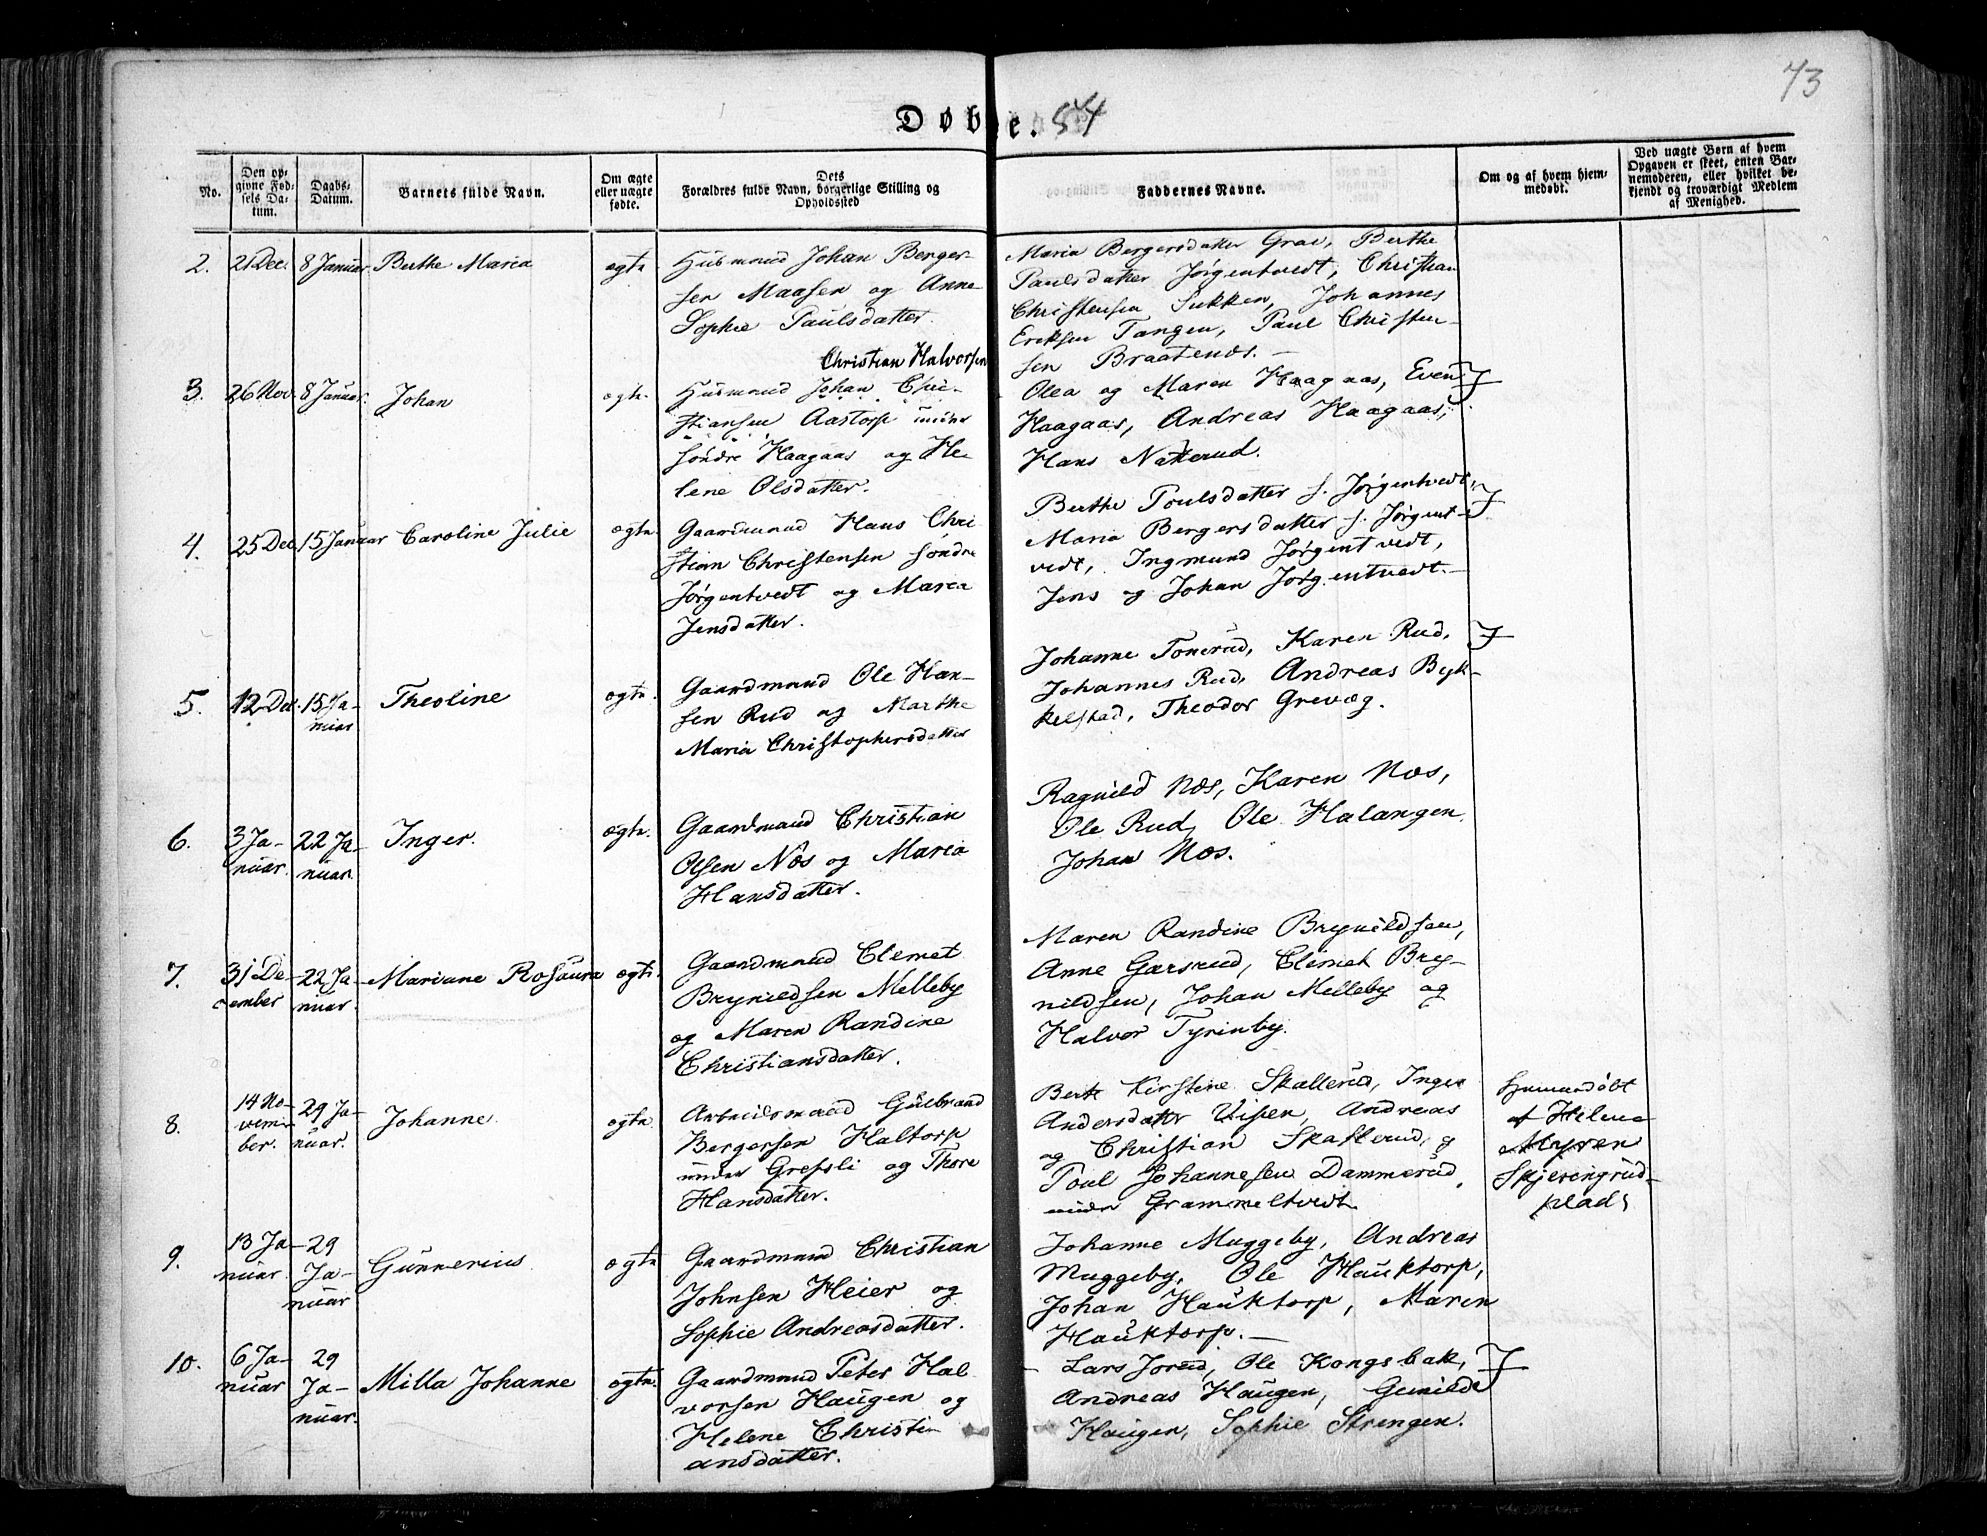 73
Døbte. 54
No.
Den opgivne Fødsels Datum.
Daabs-Datum.
Barnets fulde Navn.
Om ægte eller uægte fødte.
Dets Forældres fulde Navn, borgerlige Stilling og Opholdssted
Faddernes Navne.
Om og af hvem hjemmedøbt.
Ved uægte Børn af hvem Opgaven er skeet, enten Barnemoderen, eller hvilket bekjendt og troværdigt Medlem af Menighed.
2. 21 Dec. 8 Januar Berthe Maria ægte
Husmand Johan Berger-
sen Maasen og Anne
Sophie Paulsdatter.
Maria Bergersdatter Grav, Berthe
Paulsdatter Jørgentvedt, Christian
Christensen Sukken, Johannes
Eriksen Tangen, Paul Christen-
sen Braatenæs.
3. 26 Nov. 8 Januar. Johan ægte.
Christian Halvorsen
Husmand Johan Chri-
stiansen Aastorp under
søndre Haagaas og He-
lene Olsdatter.
Olea og Maren Haagaas, Even
Haagaas, Andreas Haagaas,
Hans Nakerud.
4. 25 Dec. 15 Januar Caroline Julie ægte
Gaardmand Hans Chri
stian Christensen søndre
Jørgentvedt og Maria
Jensdatter.
Berthe Poulsdatter s. Jørgentvedt,
Maria Bergersdatter s. Jørgent-
vedt, Ingmund Jørgentvedt,
Jens og Johan Jørgentvedt.
5. 12 Dec. 15 Ja-
nuar Theoline ægte.
Gaardmand Ole Han-
sen Rud og Marthe
Maria Christophersdatter
Johanne Tonerud, Karen Rud,
Johannes Rud, Andreas Byk-
kelstad, Theodor Grevæg.
6. 3 Ja-
nuar. 22 Ja-
nuar. Inger. ægte.
Gaardmand Christian
Olsen Næs og Maria
Hansdatter.
Ragnild Næs, Karen Næs,
Ole Rud, Ole Halangen
Johan Næs.
7. 31 De-
cember 22 Ja-
nuar. Mariane Rosaura ægte.
Gaardmand Clemet
Brynildsen Melleby
og Maren Randine
Christiansdatter.
Maren Randine Brynildsen,
Anne Garsrud, Clemet Bry-
nildsen, Johan Melleby og
Halvor Tyrinby.
8. 14 No-
vem-
ber. 29 Ja-
nuar. Johanne. ægte.
Arbeidsmand Gulbrand
Bergersen Haltorp
under Gressli og Thore
Hansdatter.
Berte Kirstine Skallerud, Inger
Andersdatter Visen, Andreas
og Christian Skallerud, og
Poul Johannesen Dammerud
under Grammeltvedt
Hjemmedøbt
af Helene
Myren
Skjerengrud-
plads
9. 13 Ja-
nuar. 29
Ja-
nuar Gunnerius ægte
Gaardmand Christian
Johnsen Heier og
Sophie Andreasdatter.
Johanne Muggeby, Andreas
Muggeby, Ole Hauktorp,
Johan Hauktorp, Maren
Hauktorp.
10. 6 Ja-
nuar 29
Ja-
nuar. Milla Johanne ægte.
Gaardmand Peter Hal
vorsen Haugen og
Helene Christi
ansdatter.
Lars Jorud, Ole Kongsbak,
Andreas Haugen, Gunilde
Haugen, Sophie Strengen.